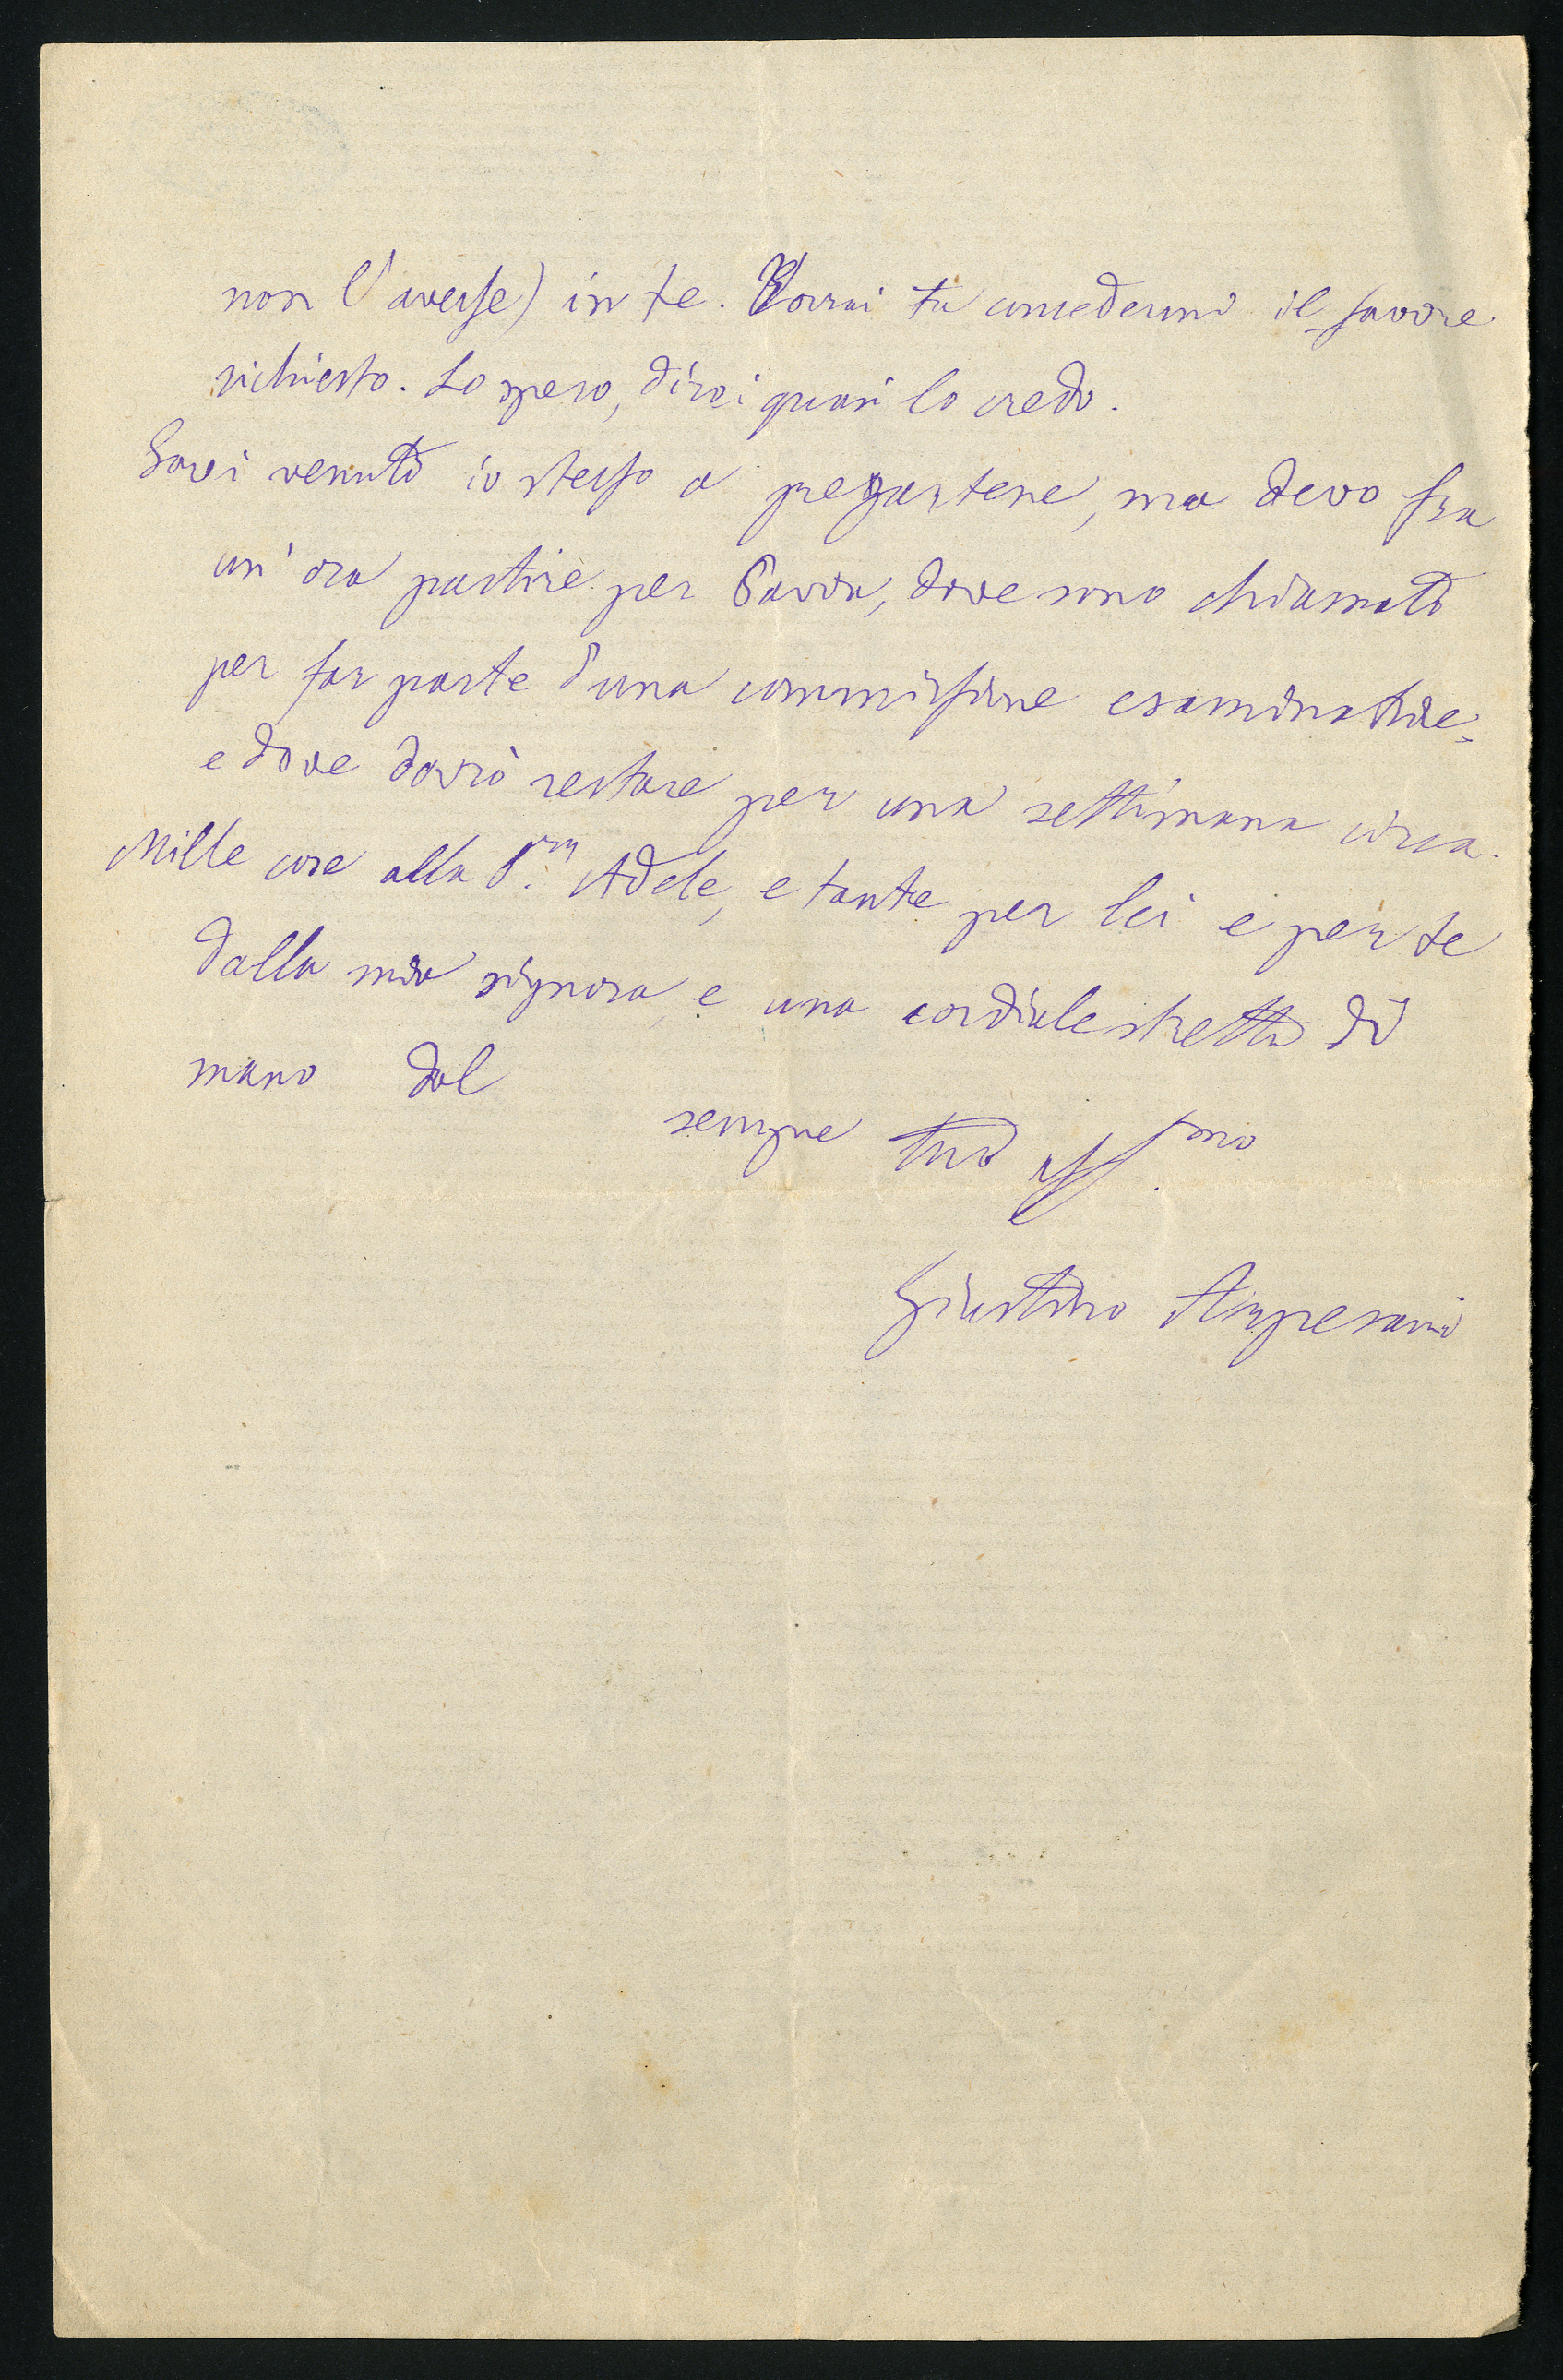 non l'avesse) in te. Vorrai tu concedermi il favore
richiesto. Lo spero, direi quasi lo credo.
Sarei venuto io stesso a pregartene, ma devo fra
un'ora partire per Pavia, dove sono chiamato
per far parte d'una commissione esaminatrice,
e dove dovrò restare per una settimana circa.
Mille cose alla S.ra Adele, e tante per lei e per te
dalla mia signora, e una cordiale stretta di
mano dal
sempre tuo aff.mo
Giustino